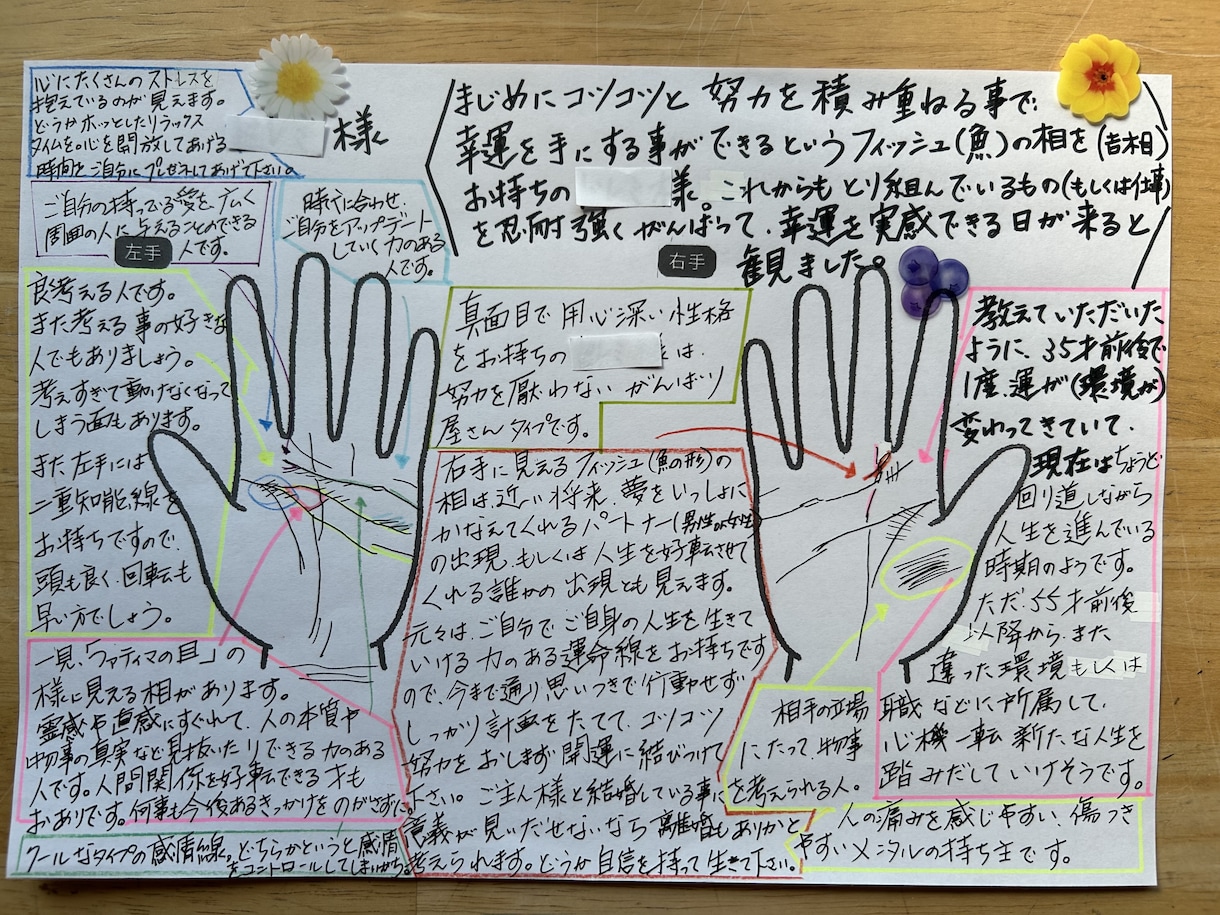 心にたくさんのストレスを
抱えているのが見えます。
どうかホッとしたリラックス
タイムを。心を開放してあげる
時間をご自分にプレゼントしてあげて下さい。
様
まじめにコツコツと努力を積み重ねる事で、
幸運を手にする事ができるというフィッシュ(魚)の相を(吉相)
お持ちの 様。これからもとり組んでいるもの(もしくは仕事)
を忍耐強くがんばって、幸運を実感できる日が来ると
観ました。
ご自分の持っている愛を、広く
周囲の人に与えることのできる
人です。
時代に合わせ、
ご自分をアップデート
していく力のある
人です。
左手
右手
良考える人です。
また考える事の好きな
人でもありましょう。
考えすぎて動けなくなって
しまう面もあります。
また左手には
二重知能線を
お持ちですので、
頭も良く、回転も
早い方でしょう。
真面目で用心深い性格
をお持ちの は、
努力を厭わないがんばり
屋さんタイプです。
教えていただいた
ように、35才前後で
1度、運が(環境が)
変わってきていて、
現在はちょうど
回り道しながら
人生を進んでいる
時期のようです。
ただ、55才前後
以降から、また
違った環境もしくは
職などに所属して、
心機一転新たな人生を
踏みだしていけそうです。
右手に見えるフィッシュ(魚の形)の
相は、近い将来、夢をいっしょに
かなえてくれるパートナー(男性or女性)
の出現、もしくは人生を好転させて
くれる誰かの出現とも見えます。
元々は、ご自分でご自身の人生を生きて
いける力のある運命線をお持ちです
ので、今まで通り思いつきで行動せず
しっかり計画をたてて、コツコツ
努力をおしまず開運に結びつけて
下さい。ご主人様と結婚している事に
意義が見いだせないなら離婚もありかと
考えられます。どうか自信を持って生きて下さい。
一見、「ファティマの目」の
様に見える相があります。
霊感や直感にすぐれて、人の本質や
物事の真実など見抜いたりできる力のある
人です。人間関係を好転できる才も
おありです。何事も今後あるきっかけをのがさずに。
クールなタイプの感情線。どちらかというと感情
をコントロールしてしまいがち。
相手の立場
にたって、物事
を考えられる人。
人の痛みを感じやすい、傷つき
やすいメンタルの持ち主です。